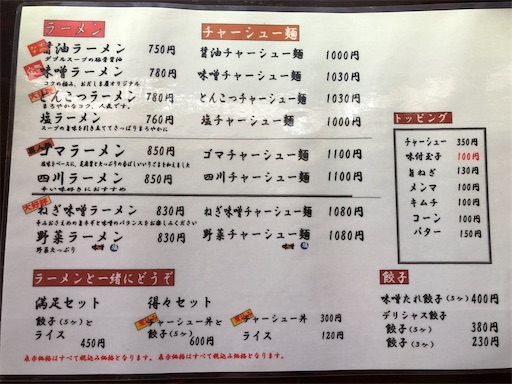 ラーメン
醤油ラーメン 750円
ダブルスープの豚骨醤油
味噌ラーメン 780円
コクの極み、おだしま屋オリジナル
とんこつラーメン 780円
まろやかなコク、人気です。
塩ラーメン 760円
スープの旨味を引き立ててさっぱりまろやかに
ゴマラーメン 850円
四川ラーメン 850円
辛い味好きにおすすめ
ねぎ味噌ラーメン 830円
辛みおさえめの旨ネギと味噌のバランスをお楽しみください
野菜ラーメン 830円
野菜たっぷり
チャーシュー麺
醤油チャーシュー麺 1000円
味噌チャーシュー麺 1030円
とんこつチャーシュー麺 1030円
塩チャーシュー麺 1000円
ゴマチャーシュー麺 1100円
四川チャーシュー麺 1100円
ねぎ味噌チャーシュー麺 1080円
野菜チャーシュー麺 1080円
トッピング
チャーシュー 350円
味付玉子 100円
旨ねぎ 130円
メンマ 100円
キムチ 100円
コーン 100円
バター 150円
ラーメンと一緒にどうぞ
満足セット
餃子(5ヶ)と
ライス
450円
得々セット
チャーシュー丼と
餃子(5ヶ)
600円
チャーシュー丼 300円
ライス 120円
表示価格はすべて税込み価格となります。表示価格はすべて税込み価格となります。
餃子
味噌たれ餃子(5ヶ) 400円
デリシャス餃子
餃子(5ヶ) 380円
餃子(3ヶ) 230円